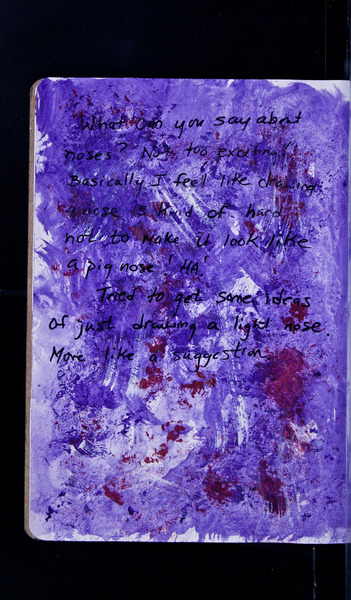 What can you say about
noses? Not too exciting!
Basically I feel like drawing
a nose is kind of hard
not to make it look like
a pig nose! HA!
Tried to get some ideas
of just drawing a light nose.
More like a suggestion